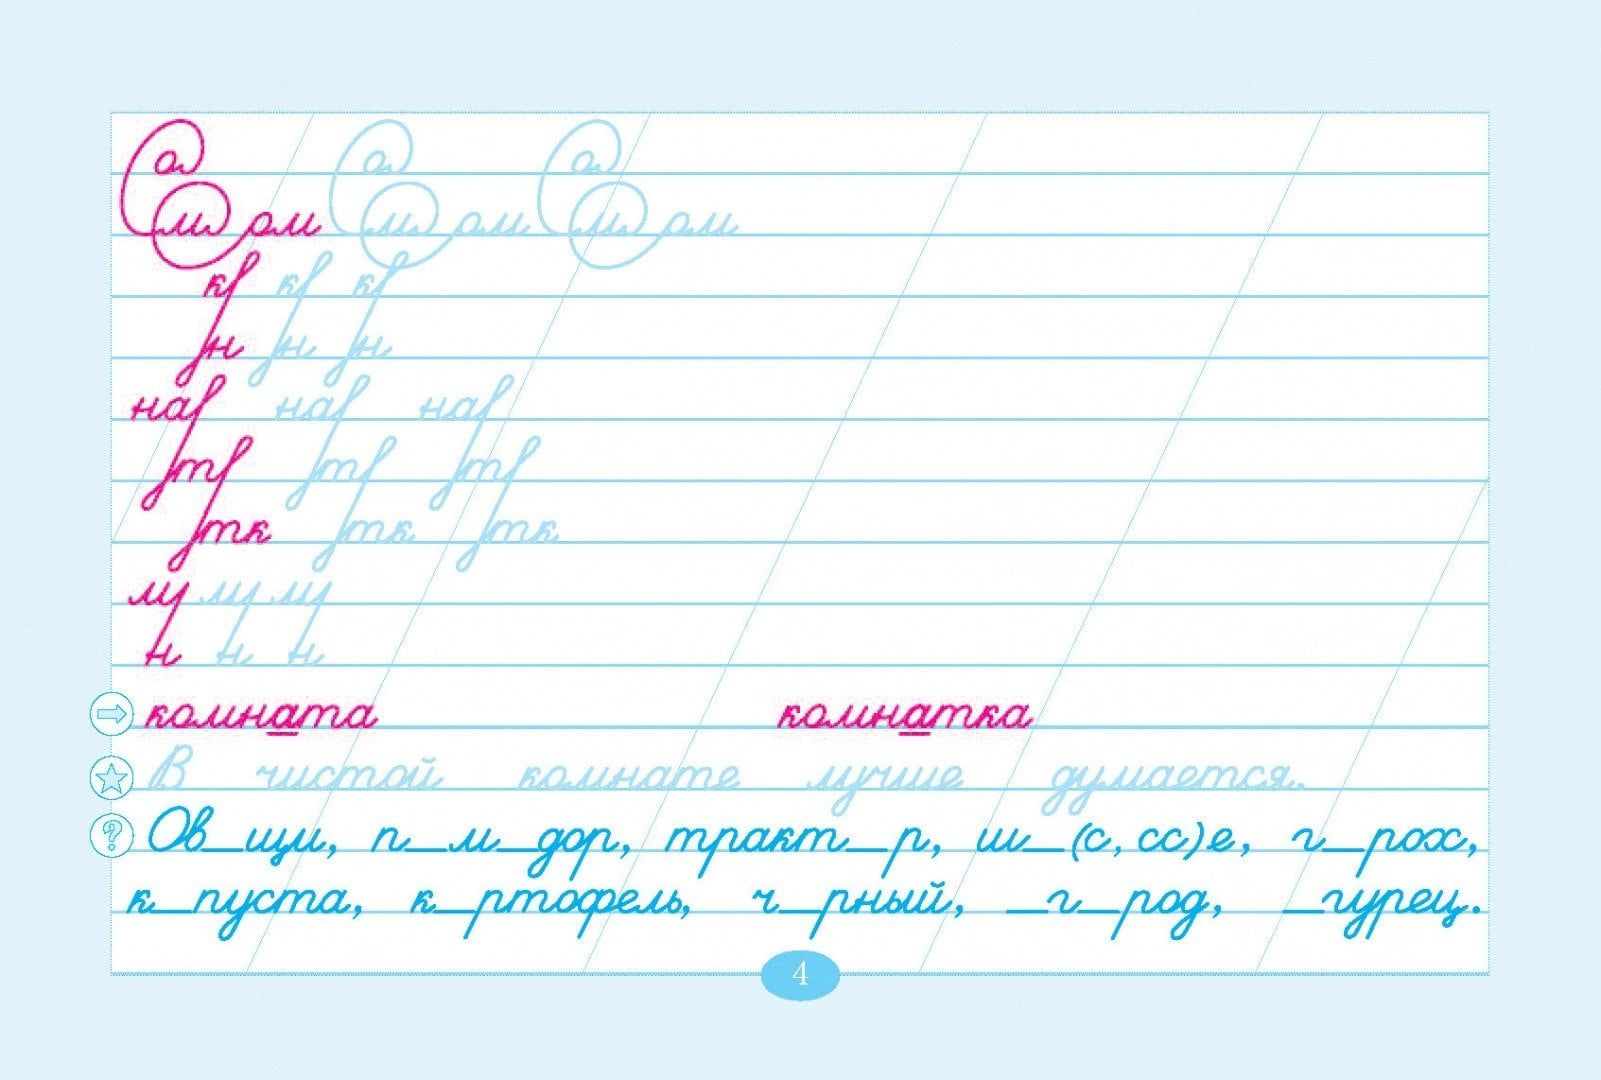 Са Са Са
См ом См ом См ом
кр кр кр
рн рн рн
нар нар нар
ртр ртр ртр
ртк ртк ртк
му му му
н н н
комната комнатка
В чистой комнате лучше думается.
Ов_щи, п_м_дор, тракт_р, ш_(с, сс)е, г_рох,
к_пуста, к_ртофель, ч_рный, _г_род, _гурец.
4